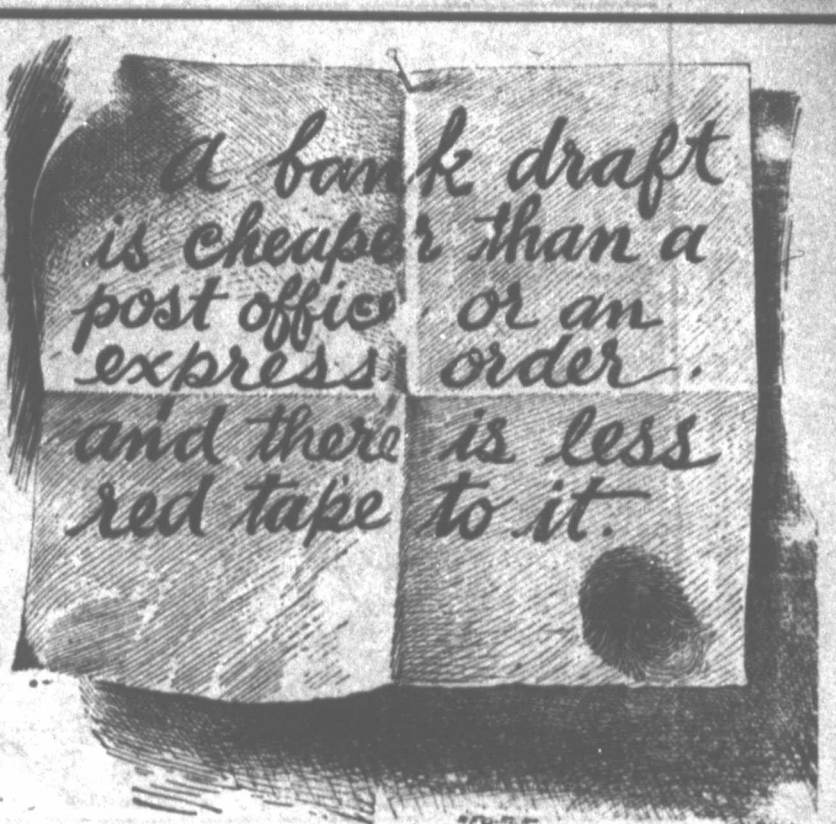 a bank draft
is cheaper than a
post office or an
express order.
and there is less
red tape to it.